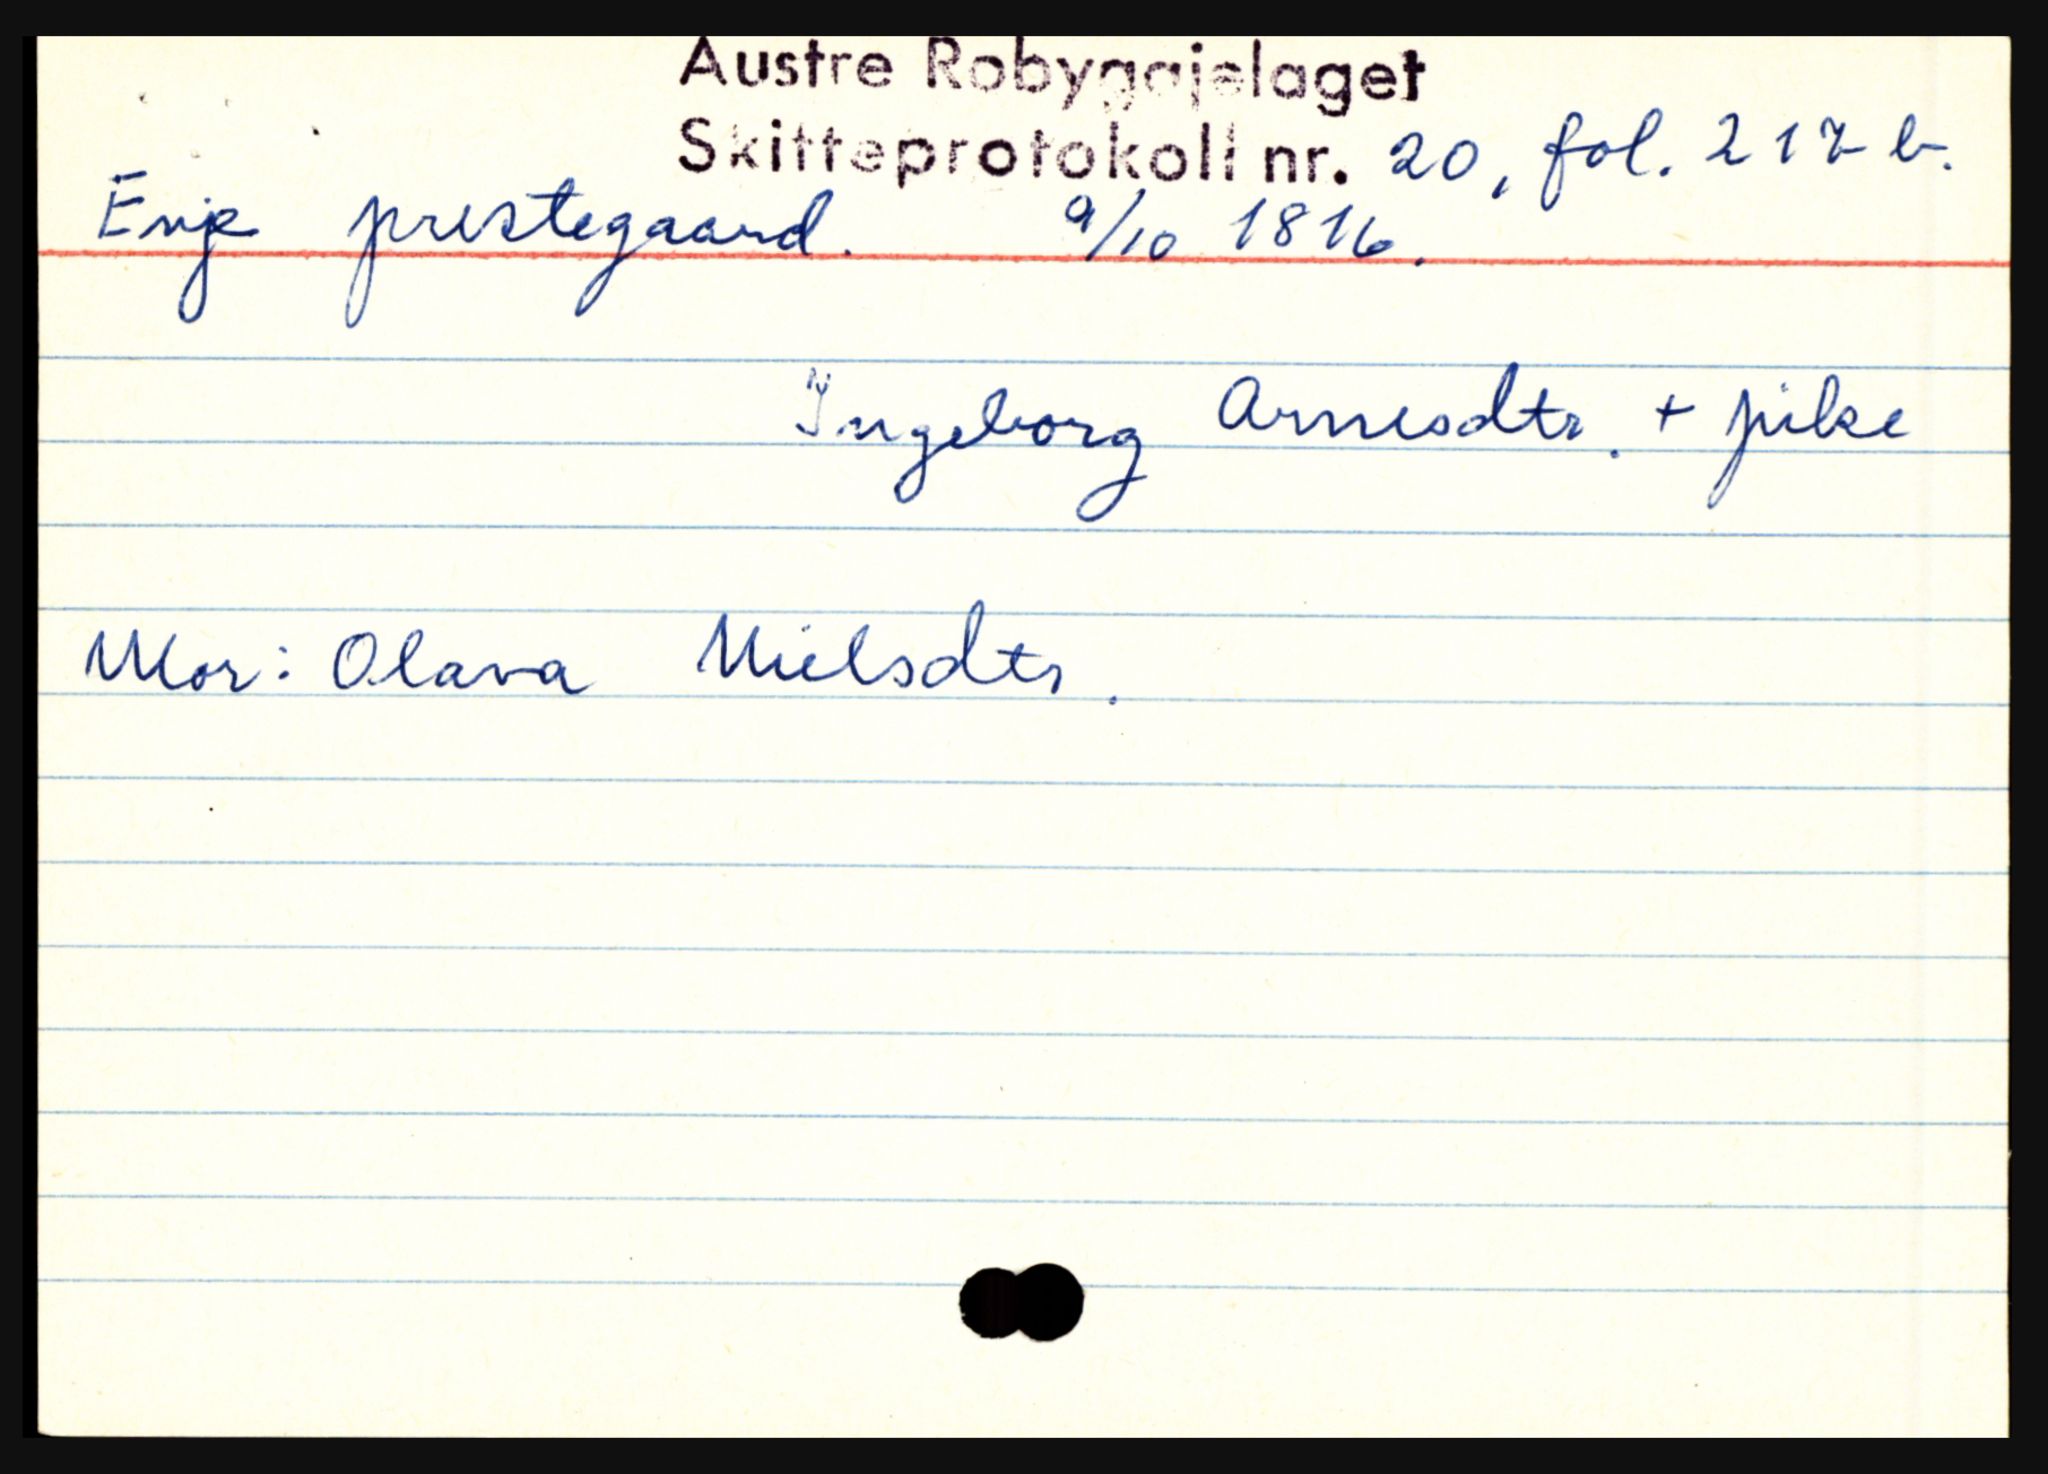 Austre Robyggjelaget
Skifteprotokoll nr. 20, fol. 217 b.
Evje prestegaard. 9/10 1816.
Ingeborg Arnesdtr. + pike
Mor: Olava Nielsdtr.